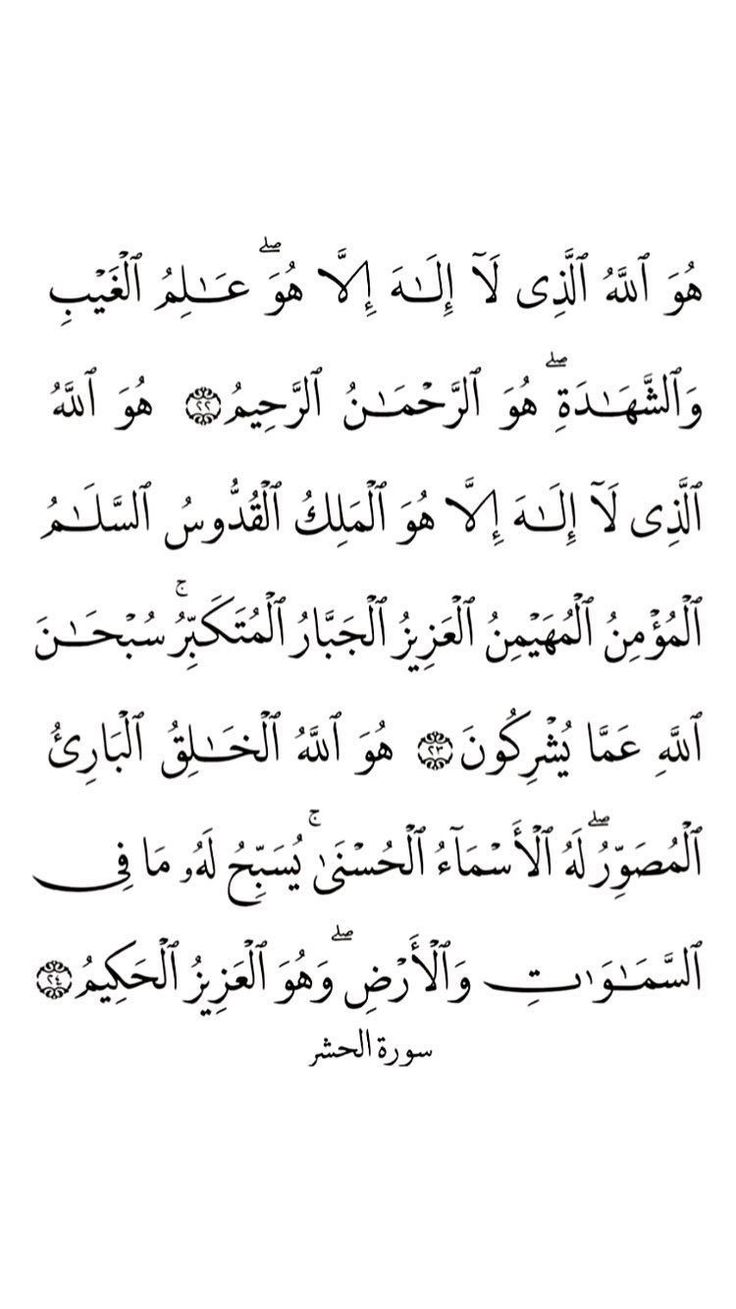 هُوَ ٱللَّهُ ٱلَّذِى لَآ إِلَـٰهَ إِلَّا هُوَ ۖ عَـٰلِمُ ٱلْغَيْبِ
وَٱلشَّهَـٰدَةِ ۖ هُوَ ٱلرَّحْمَـٰنُ ٱلرَّحِيمُ ٢٢ هُوَ ٱللَّهُ
ٱلَّذِى لَآ إِلَـٰهَ إِلَّا هُوَ ٱلْمَلِكُ ٱلْقُدُّوسُ ٱلسَّلَـٰمُ
ٱلْمُؤْمِنُ ٱلْمُهَيْمِنُ ٱلْعَزِيزُ ٱلْجَبَّارُ ٱلْمُتَكَبِّرُ ۚ سُبْحَـٰنَ
ٱللَّهِ عَمَّا يُشْرِكُونَ ٢٣ هُوَ ٱللَّهُ ٱلْخَـٰلِقُ ٱلْبَارِئُ
ٱلْمُصَوِّرُ ۖ لَهُ ٱلْأَسْمَآءُ ٱلْحُسْنَىٰ ۚ يُسَبِّحُ لَهُۥ مَا فِى
ٱلسَّمَـٰوَٰتِ وَٱلْأَرْضِ ۖ وَهُوَ ٱلْعَزِيزُ ٱلْحَكِيمُ ٢٤
سورة الحشر